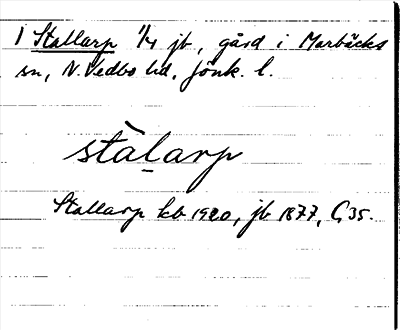 1 Stallarp 1/4 jb, gård i Marbäcks
sn, N. Vedbo hd, Jönk. l.
stàlarp
Stallarp kb 1920, jb 1877, G 35.